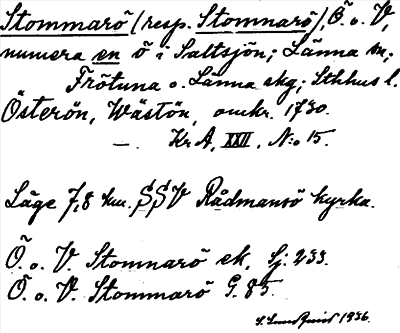 Stommarö (resp. Stomnarö), Ö. o. V,
numera en ö i Saltsjön; Länna sn,
Frötuna o. Länna skg; Sthlms l.
Österön, Wästön, omkr. 1730.
—. Kr A, XXII, N:o 15.
Läge 7,8 km. SSV Rådmansö kyrka.
Ö. o. V. Stomnarö ek. Sj. 233.
Ö. o. V. Stommarö G. 85.
S. Lundquist 1936.